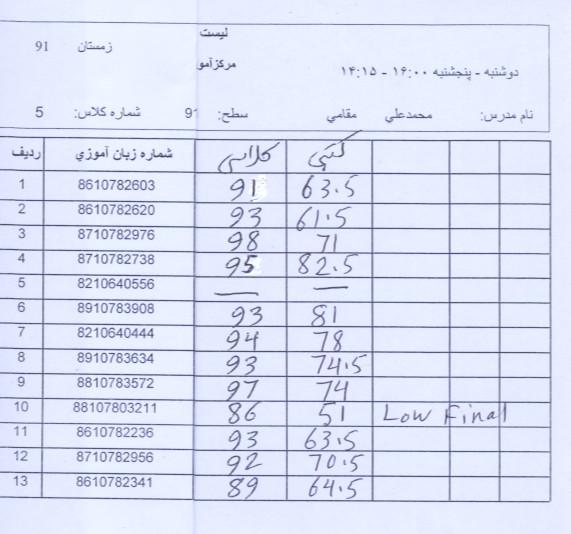 لیست
زمستان 91
مرکز آمو
دوشنبه - پنجشنبه ۱۶:۰۰ - ۱۴:۱۵
نام مدرس: محمدعلي مقامي سطح: 91 شماره کلاس: 5
ردیف شماره زبان آموزي کلاسی کتبی
1 8610782603 91 63.5
2 8610782620 93 61.5
3 8710782976 98 71
4 8710782738 95 82.5
5 8210640556 — —
6 8910783908 93 81
7 8210640444 94 78
8 8910783634 93 74.5
9 8810783572 97 74
10 88107803211 86 51 Low Final
11 8610782236 93 63.5
12 8710782956 92 70.5
13 8610782341 89 64.5